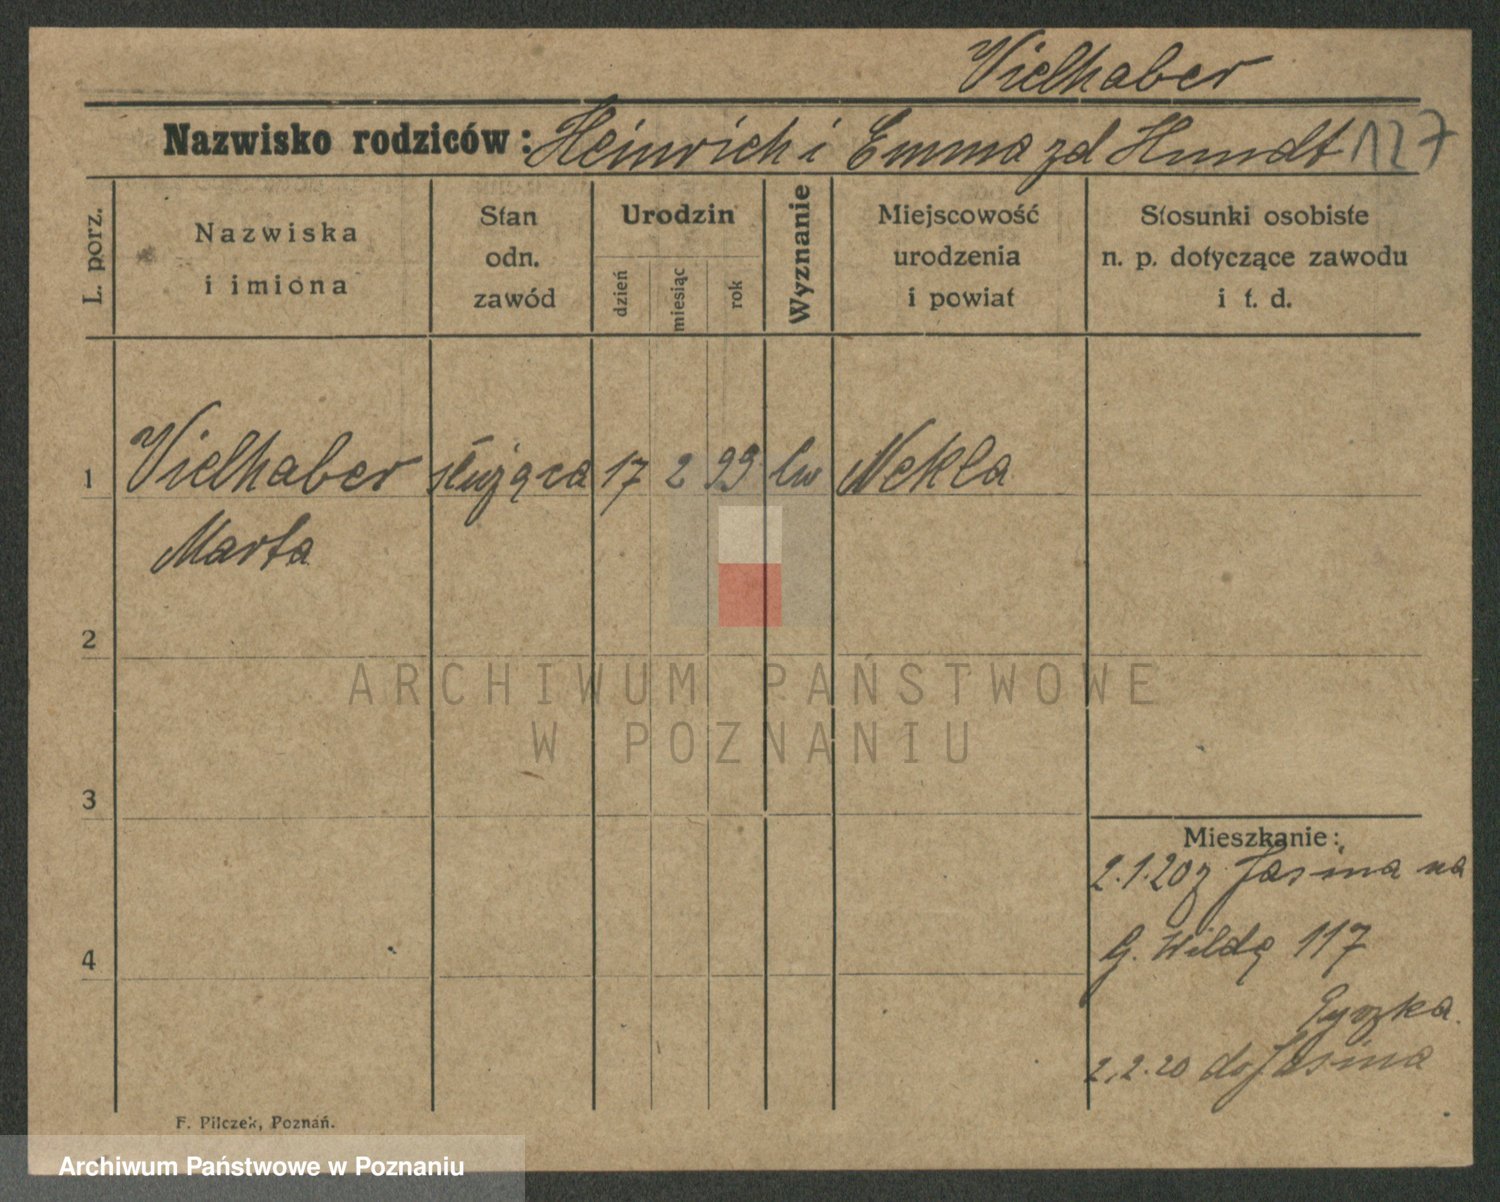 Vielhaber
Nazwisko rodziców: Heinrich i Emma zd Hundt 127
L. porz.
Nazwiska
i imiona
Stan
odn.
zawód
Urodzin
dzień
miesiąc
rok
Wyznanie
Miejscowość
urodzenia
i powiat
Stosunki osobiste
n. p. dotyczące zawodu
i t. d.
1 Vielhaber służąca 17 2 99 lu Nekla
Marta
2
ARCHIWUM PAŃSTWOWE
W POZNANIU
3
Mieszkanie:
2.1.20 z Jasina na
4 G. Wildę 117
2.2.20 do Jasina
F. Pilczek, Poznań.
Archiwum Państwowe w Poznaniu